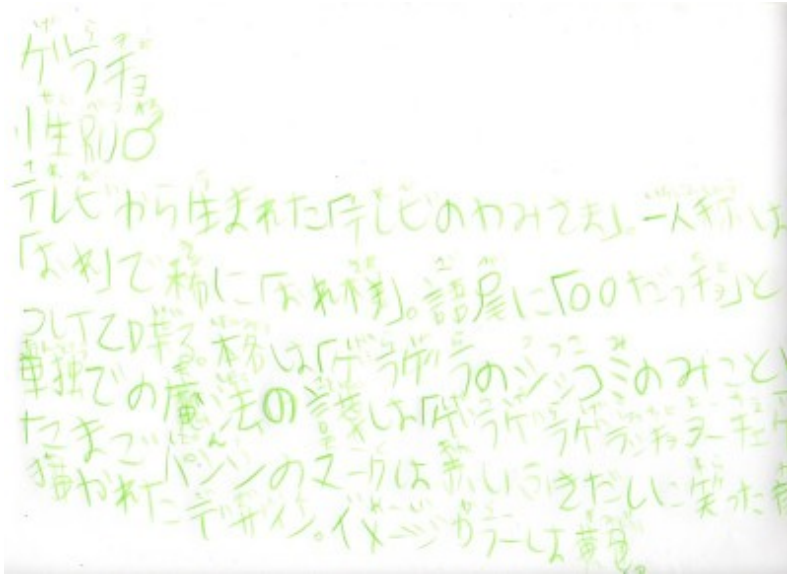 ゲラチョ
性別♂
テレビから生まれた「テレビのかみさま」。一人称は
「おれ」で稀に「おれ様」。語尾に「〇〇だっチョ」と
ついて喋る。本名は「ゲラゲラのツッコミのみこと」
単独での魔法の言葉は「ゲラゲラゲラッチョ
たまごパンツのマークは赤いふきだしに笑った
描かれたデザイン。イメージカラーは黄色。